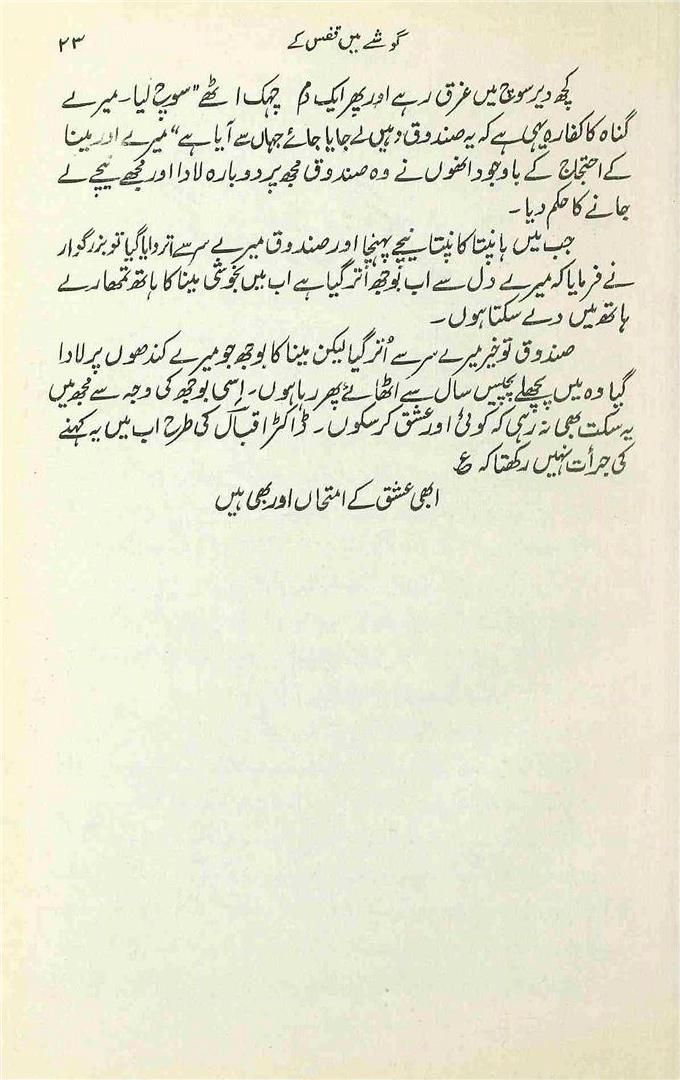 گوشے میں قفس کے ۲۳
کچھ دیر سوچ میں غرق رہے اور پھر ایک دم چہک اٹھے "سوچ لیا۔ میرے
گناہ کا کفارہ یہی ہے کہ یہ صندوق وہیں لے جایا جائے جہاں سے آیا ہے" میرے اور مینا
کے احتجاج کے باوجود انھوں نے وہ صندوق مجھ پر دوبارہ لادا اور مجھے نیچے لے
جانے کا حکم دیا۔
جب میں ہانپتا کانپتا نیچے پہنچا اور صندوق میرے سر سے اتروایا گیا تو بزرگوار
نے فرمایا کہ میرے دل سے اب بوجھ اُتر گیا ہے اب میں بخوشی مینا کا ہاتھ تمھارے
ہاتھ میں دے سکتا ہوں۔
صندوق تو خیر میرے سر سے اُتر گیا لیکن مینا کا بوجھ جو میرے کندھوں پر لادا
گیا وہ میں پچھلے پچیس سال سے اٹھائے پھر رہا ہوں۔ اِسی بوجھ کی وجہ سے مجھ میں
یہ سکت بھی نہ رہی کہ کوئی اور عشق کر سکوں۔ ڈاکٹر اقبال کی طرح اب میں یہ کہنے
کی جرأت نہیں رکھتا کہ ؏
ابھی عشق کے امتحاں اور بھی ہیں